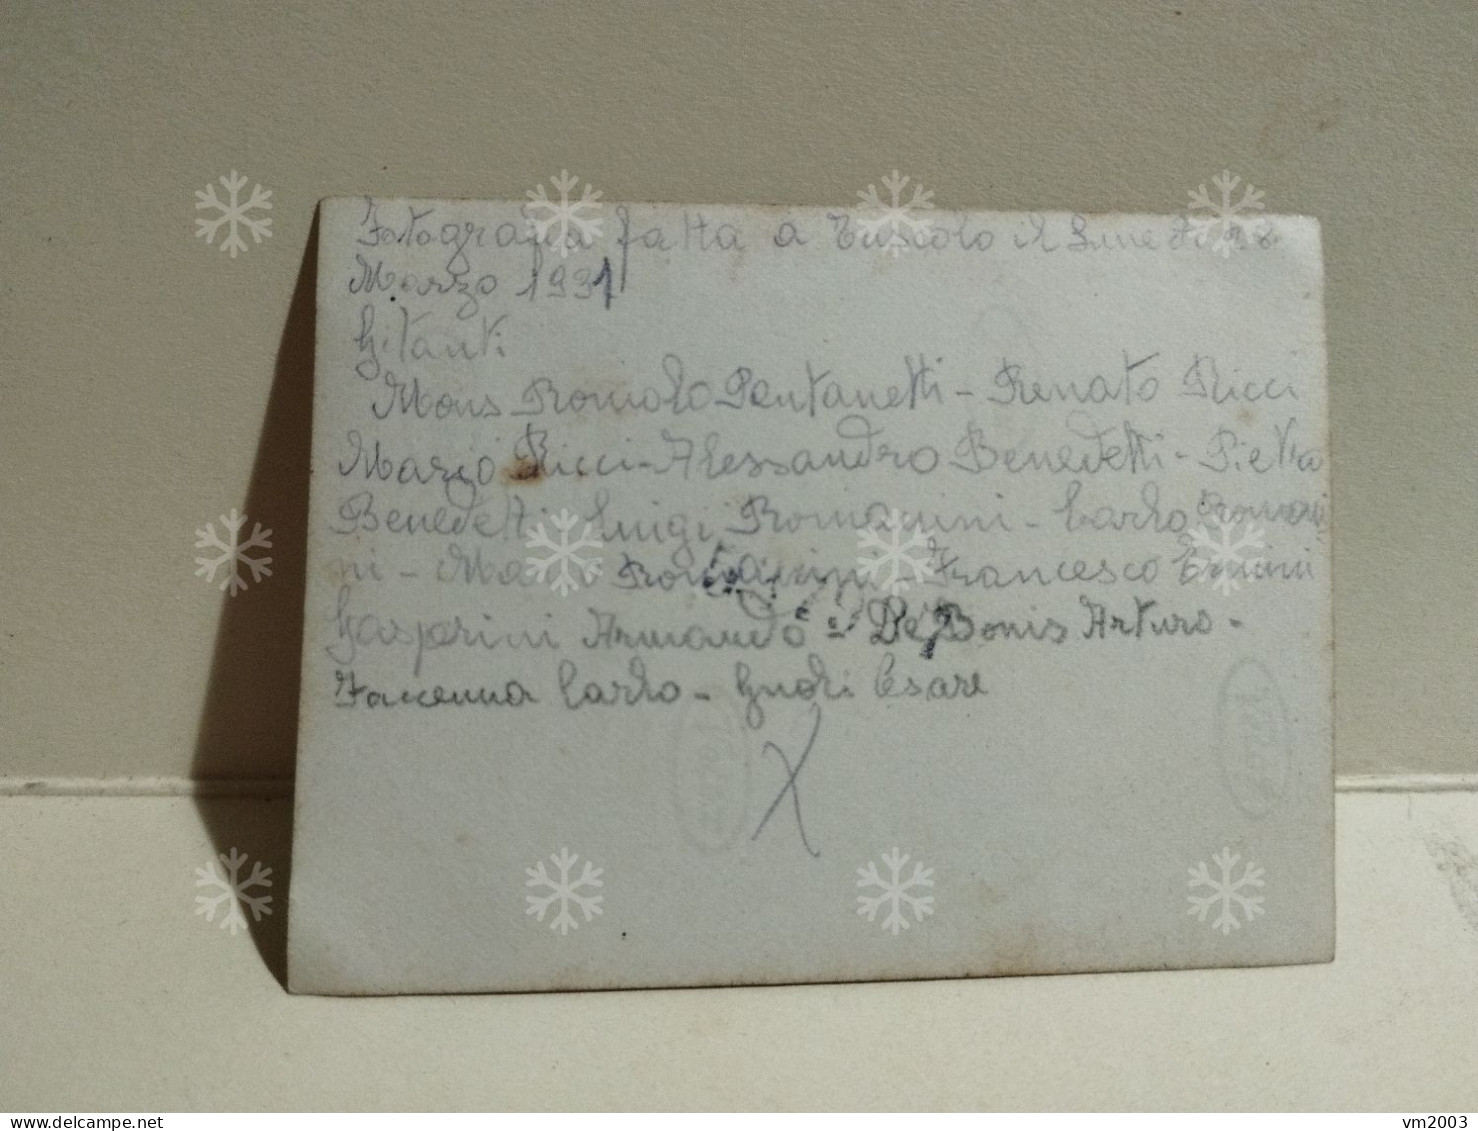 Fotografia fatta a Tuscolo il Lunedì 28
Marzo 1931
Gitanti
Mons Romolo Pentanetti - Renato Ricci
Mario Ricci - Alessandro Benedetti - Pietro
Benedetti Luigi Romanini - Carlo Romani
ni - Mario Romanini - Francesco Ermini
Gasparini Armando - De Bonis Arturo -
Facenna Carlo - Gnoli Cesare
X
vm2003